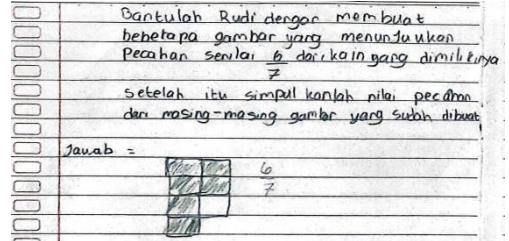 Bantulah Rudi dengan membuat
bebetapa gambar yang menunjuukan
pecahan senilai 6/7 dari kain yang dimilikinya
setelah itu simpul kanlah nilai pecahan
dari masing-masing gambar yang sudah dibuat
Jawab =
6/7